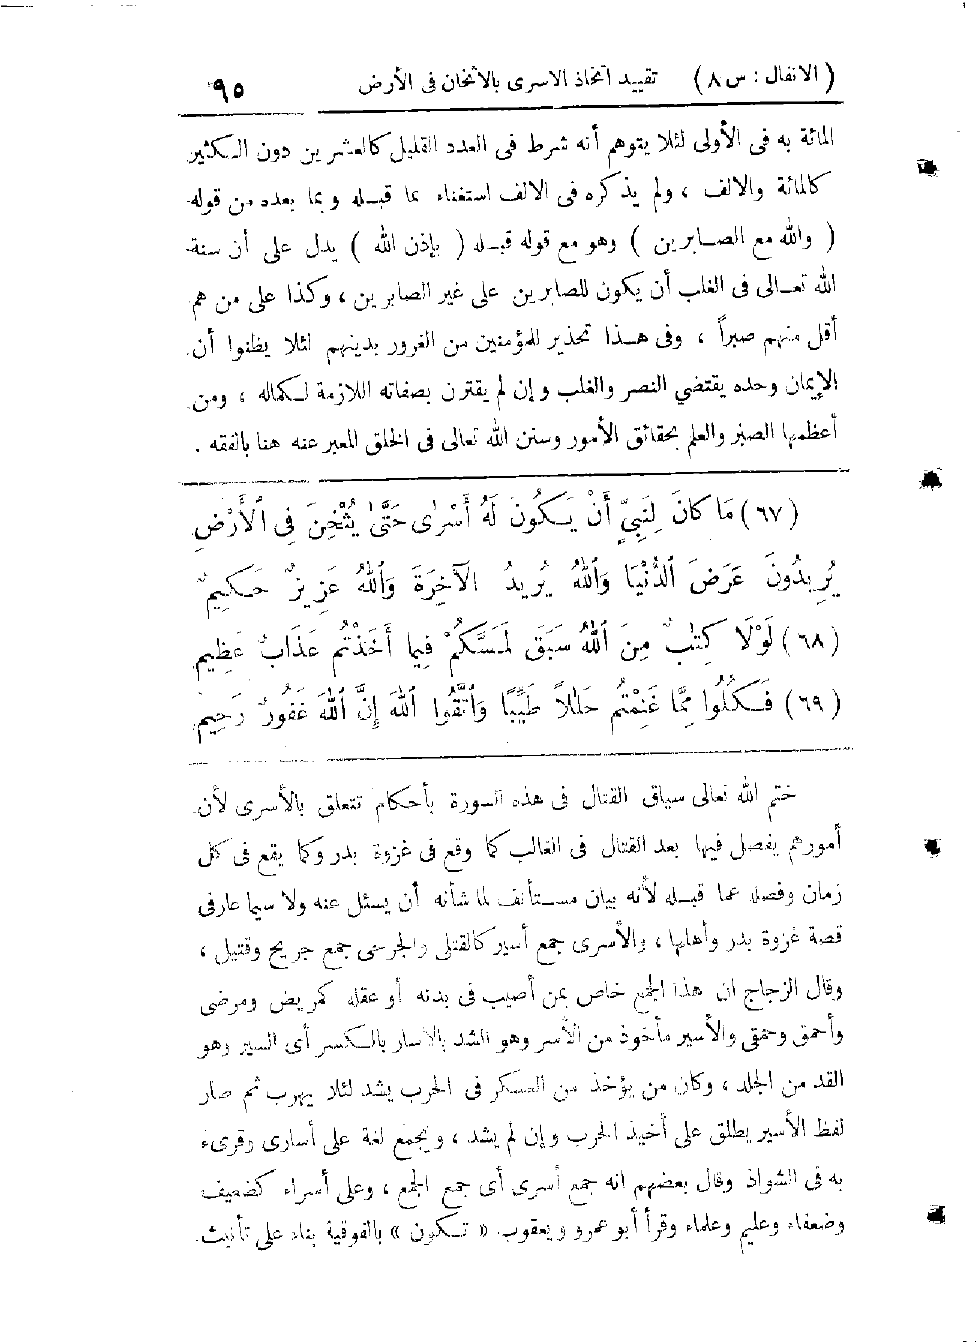 ( الانفال : س ٨ ) تقييد اتخاذ الاسرى بالأثخان فى الأرض ٩٥
المائة به فى الأولى لئلا يتوهم أنه شرط فى العدد القليل كالعشرين دون الكثير
كالمائة والالف ، ولم يذكره فى الالف استغناء بما قبله وبما بعده من قوله
( والله مع الصابرين ) وهو مع قوله قبله ( بإذن الله ) يدل على أن سنة
الله تعالى فى الغلب أن يكون للصابرين على غير الصابرين ، وكذا على من هم
أقل منهم صبراً ، وفى هذا تحذير للمؤمنين من الغرور بدينهم لئلا يظنوا أن
الإيمان وحده يقتضي النصر والغلب وإن لم يقترن بصفاته اللازمة لكماله ، ومن
أعظمها الصبر والعلم بحقائق الأمور وسنن الله تعالى فى الخلق المعبر عنه هنا بالفقه .
(٦٧) مَا كَانَ لِنَبِيٍّ أَنْ يَكُونَ لَهُ أَسْرٰى حَتَّىٰ يُثْخِنَ فِى ٱلْأَرْضِ
يُرِيدُونَ عَرَضَ ٱلدُّنْيَا وَٱللهُ يُرِيدُ الآخِرَةَ وَٱللهُ عَزِيزٌ حَكِيمٌ
(٦٨) لَوْلَا كِتٰبٌ مِنَ ٱللهِ سَبَقَ لَمَسَّكُمْ فِيمَا أَخَذْتُمْ عَذَابٌ عَظِيمٌ
(٦٩) فَكُلُوا مِمَّا غَنِمْتُمْ حَلٰلاً طَيِّبًا وَٱتَّقُوا ٱللهَ إِنَّ ٱللهَ غَفُورٌ رَحِيمٌ
ختم الله تعالى سياق القتال فى هذه السورة بأحكام تتعلق بالأسرى لأن
أمورهم يفصل فيها بعد القتال فى الغالب كما وقع فى غزوة بدر وكما يقع فى كل
زمان وفصله عما قبله لأنه بيان مستأنف لما شأنه أن يسئل عنه ولا سيما عارفى
قصة غزوة بدر وأهلها ، والأسرى جمع أسير كالقتلى والجرحى جمع جريح وقتيل ،
وقال الزجاج ان هذا الجمع خاص بمن أصيب فى بدنه أو عقله كمريض ومرضى
وأحمق وحمقى والأسير مأخوذ من الأسر وهو الشد بالاسار بالكسر أى السير وهو
القد من الجلد ، وكان من يؤخذ من العسكر فى الحرب يشد لئلا يهرب ثم صار
لفظ الأسير يطلق على أخيذ الحرب وإن لم يشد ، ويجمع لغة على أسارى وقرىء
به فى الشواذ وقال بعضهم انه جمع أسرى أى جمع الجمع ، وعلى أسراء كضعيف
وضعفاء وعليم وعلماء وقرأ أبو عمرو ويعقوب « تكون » بالفوقية بناء على تأنيث